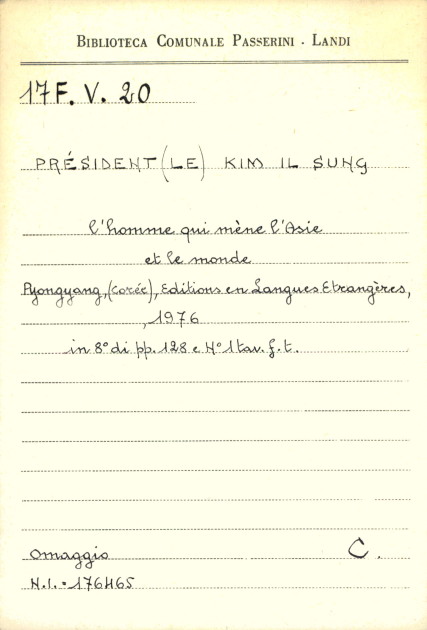 BIBLIOTECA COMUNALE PASSERINI - LANDI
17 F. V. 20
PRÉSIDENT (LE) KIM IL SUNG
l'homme qui mène l'Asie
et le monde
Pyongyang, (Corée), Editions en Langues Etrangères,
, 1976
in 8° di pp. 128 e N° 1 tav. f. t.
Omaggio C.
N.I. = 176465